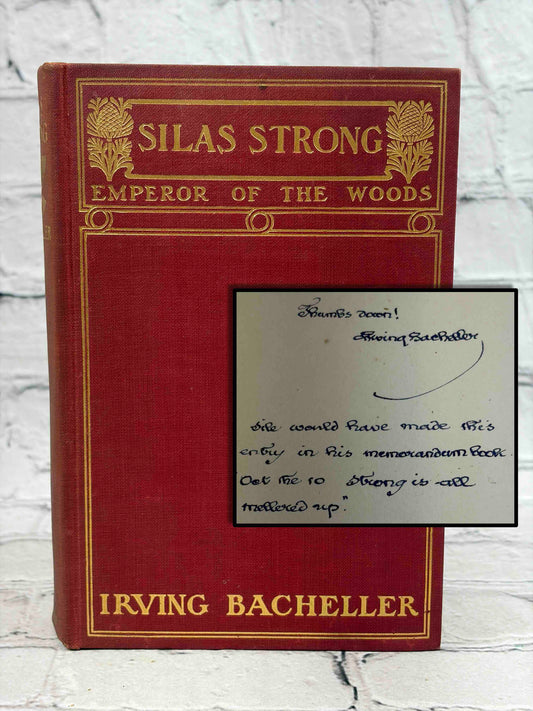 SILAS STRONG
EMPEROR OF THE WOODS
Thumbs down!
Irving Bacheller
Sile would have made this
entry in his memorandum book.
Oct the 10 Strong is all
mellered up."
IRVING BACHELLER